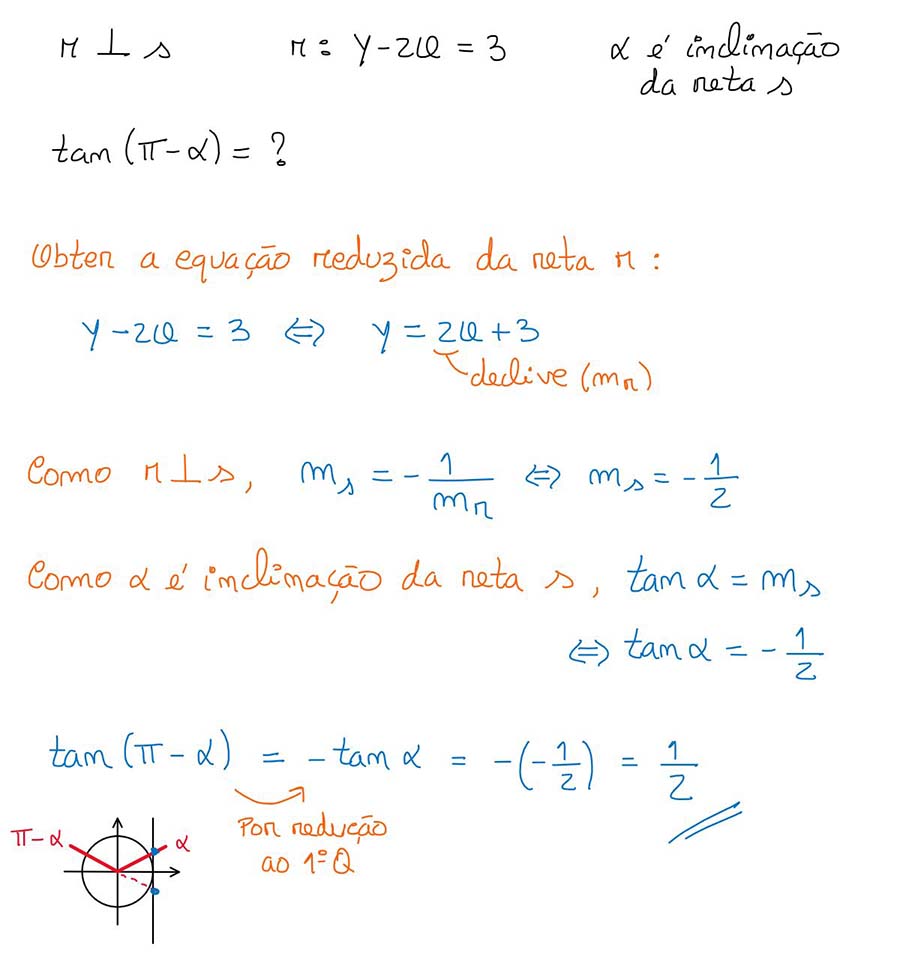 r ⊥ s r: y-2x = 3 α é inclinação
da reta s
tan (π-α) = ?
Obter a equação reduzida da reta r :
y-2x = 3 ⇔ y = 2x+3
declive (mᵣ)
Como r⊥s, mₛ = - 1/mᵣ ⇔ mₛ = - 1/2
Como α é inclinação da reta s, tan α = mₛ
⇔ tan α = - 1/2
tan (π-α) = -tan α = -(-1/2) = 1/2
π-α α Por redução
ao 1ºQ